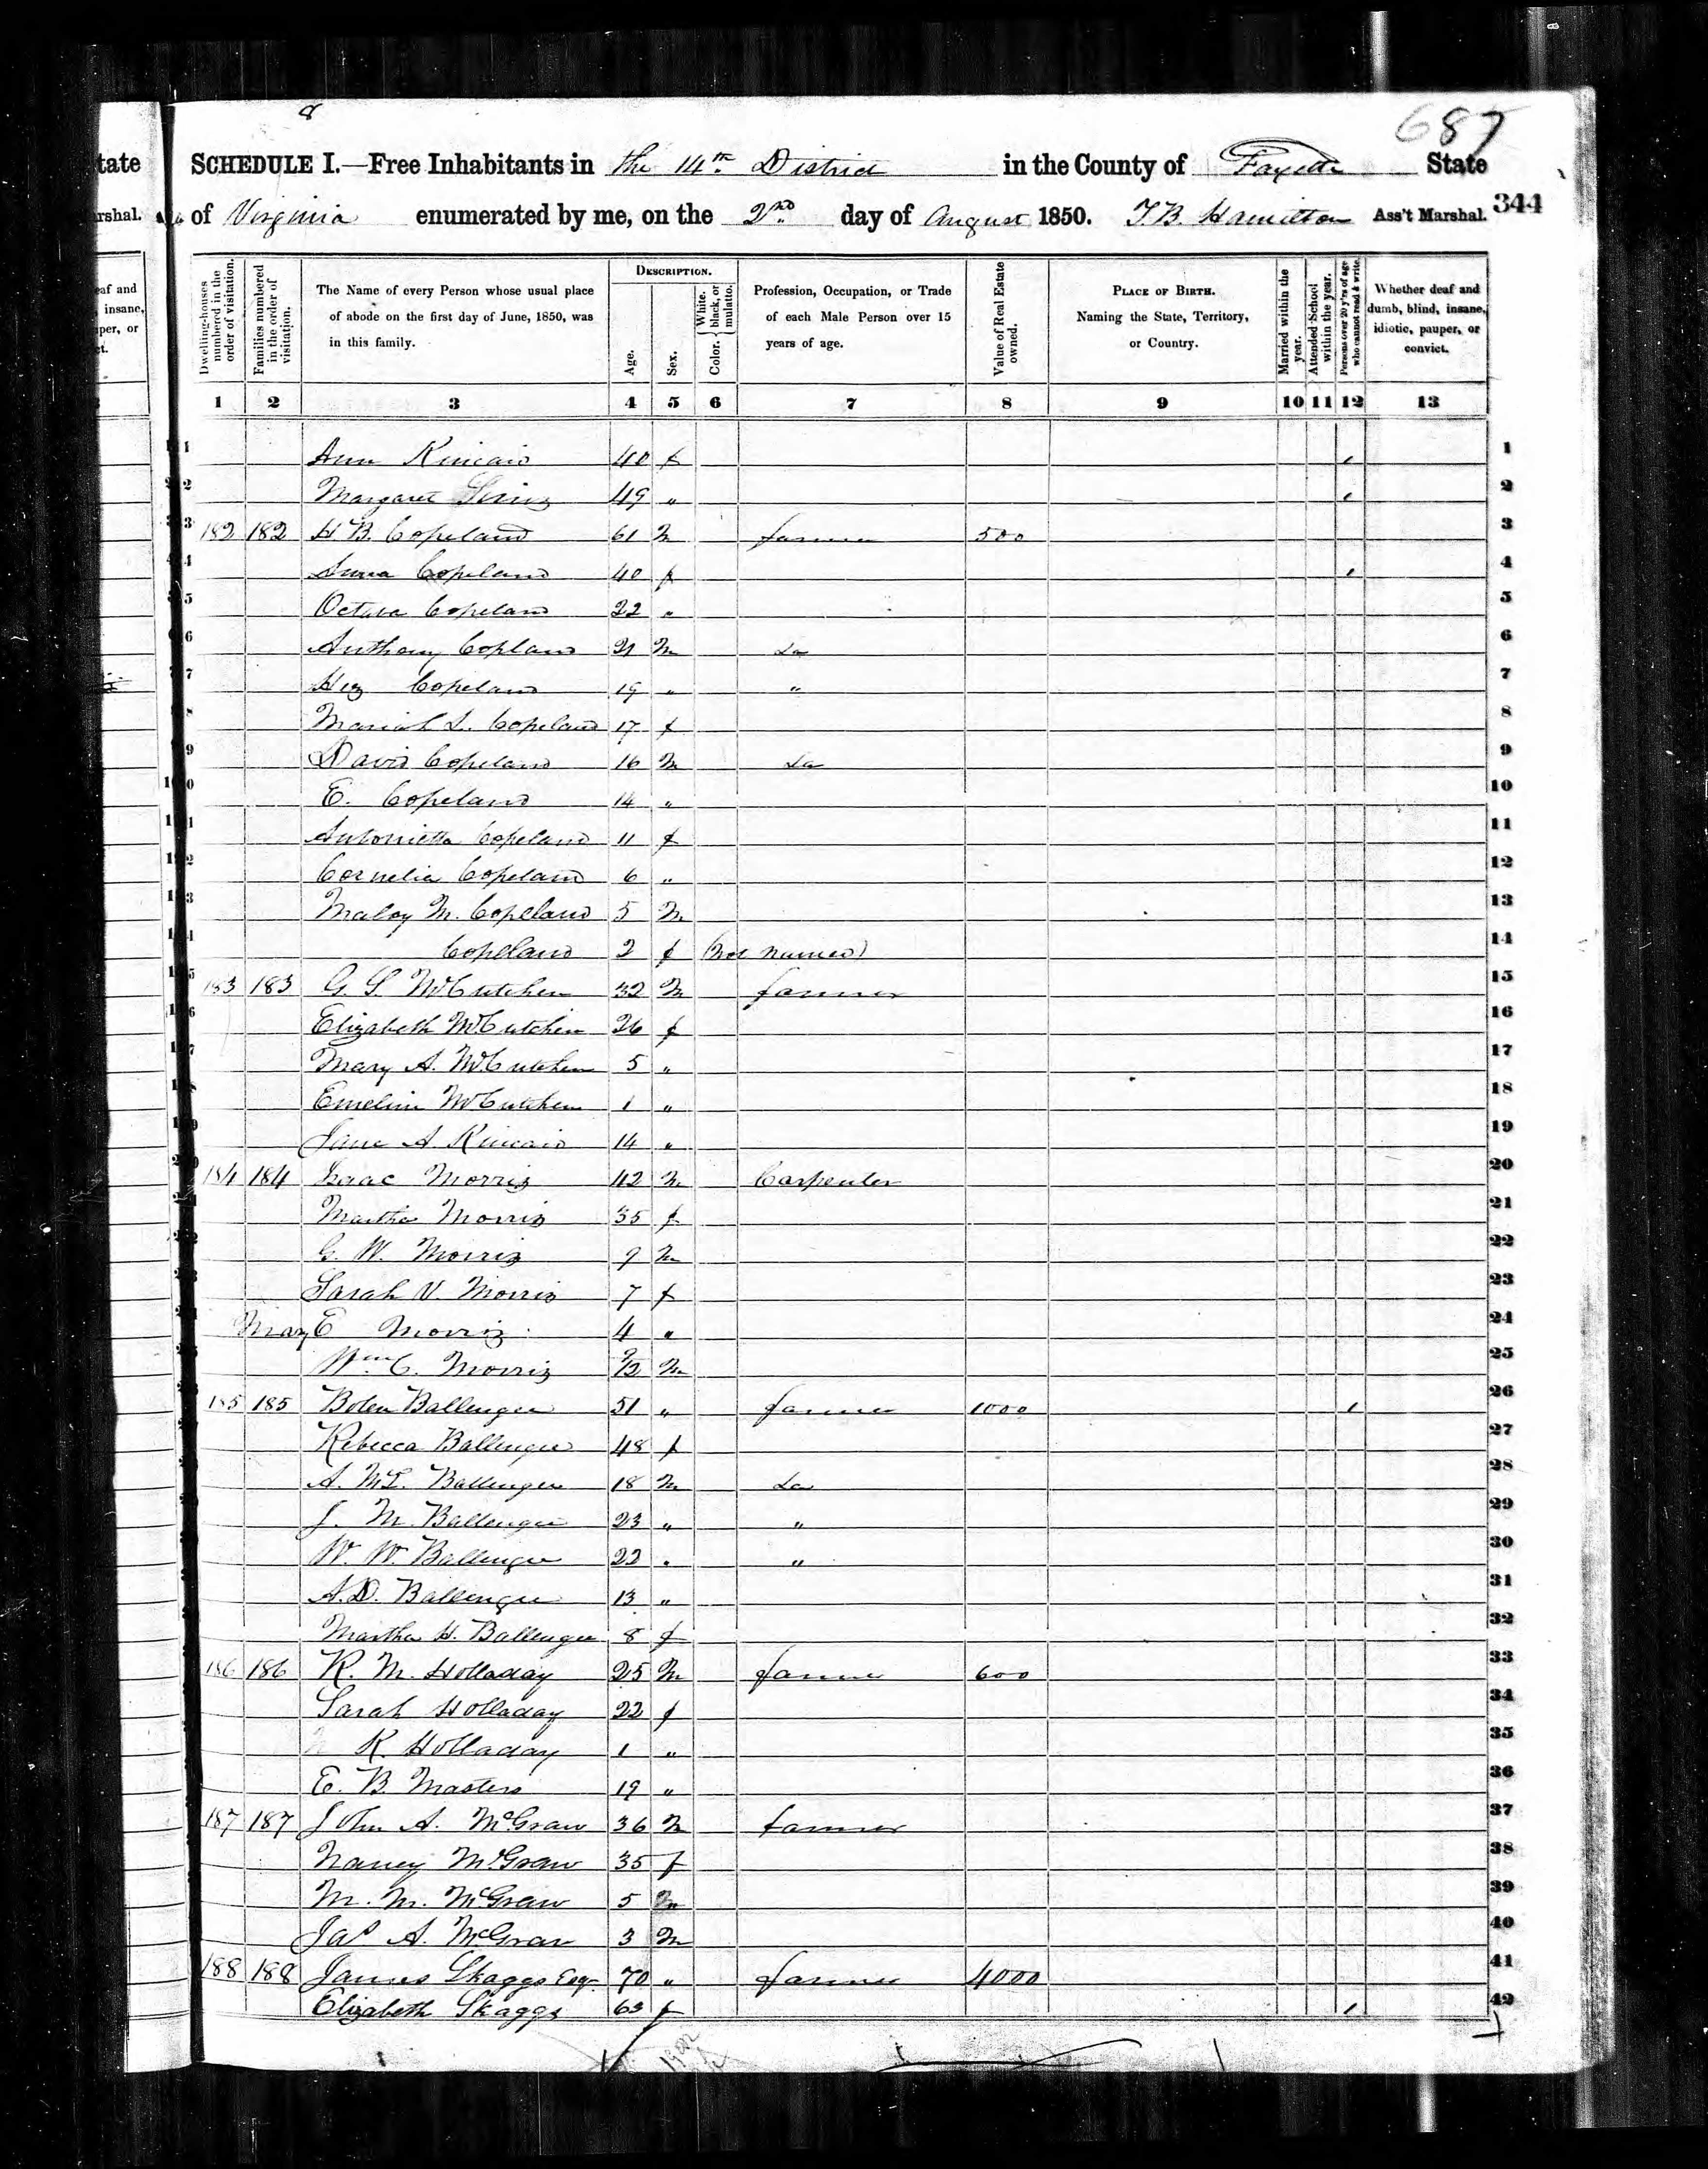 8
687
SCHEDULE I.—Free Inhabitants in the 14th District in the County of Fayette State
of Virginia enumerated by me, on the 2nd day of August 1850. T.B. Hamilton Ass't Marshal. 344
tate
arshal.
eaf and
insane,
uper, or
ct.
Dwelling-houses numbered in the order of visitation.
Families numbered in the order of visitation.
The Name of every Person whose usual place of abode on the first day of June, 1850, was in this family.
DESCRIPTION.
Age.
Sex.
Color. White, black, or mulatto.
Profession, Occupation, or Trade of each Male Person over 15 years of age.
Value of Real Estate owned.
PLACE OF BIRTH. Naming the State, Territory, or Country.
Married within the year.
Attended School within the year.
Persons over 20 y'rs of age who cannot read & write.
Whether deaf and dumb, blind, insane, idiotic, pauper, or convict.
1 2 3 4 5 6 7 8 9 10 11 12 13
1 Ann Kincaid 40 f / 1
2 Margaret 49 " / 2
3 182 182 H. B. Copeland 61 M farmer 500 3
4 Copeland 40 f / 4
5 Octava Copeland 22 " 5
6 Anthony Copland 21 M Do 6
7 Hez Copeland 19 " " 7
8 Mariah L. Copeland 17 f 8
9 David Copeland 16 M Do 9
10 E. Copeland 14 " 10
11 Antonietta Copeland 11 f 11
12 Cornelia Copeland 6 " 12
13 M. Copeland 5 M 13
14 Copeland 2 f (not named) 14
15 183 183 G. S. McCutchen 32 M farmer 15
16 Elizabeth McCutchen 26 f 16
17 Mary A. McCutchen 5 " 17
18 Emeline McCutchen 1 " 18
19 Jane A. Kincaid 14 " 19
20 184 184 Isaac Morris 42 M Carpenter 20
21 Martha Morris 35 f 21
22 G. W. Morris 9 M 22
23 Sarah V. Morris 7 f 23
24 Mary E Morris 4 " 24
25 Wm C. Morris 9/12 M 25
26 185 185 Bolen Ballenger 51 " farmer 1000 / 26
27 Rebecca Ballenger 48 f 27
28 A. McL. Ballenger 18 M Do 28
29 J. M. Ballenger 23 " " 29
30 W. W. Ballenger 22 " " 30
31 A. D. Ballenger 13 " 31
32 Martha H. Ballenger 8 f 32
33 186 186 R. M. Holladay 25 M farmer 600 33
34 Sarah Holladay 22 f 34
35 K. Holladay 1 " 35
36 E. B. Masters 19 " 36
37 187 187 John A. McGraw 36 M farmer 37
38 Nancy McGraw 35 f 38
39 M. M. McGraw 5 M 39
40 Jas A. McGraw 3 M 40
41 188 188 James Skaggs Esqr. 70 " farmer 4000 41
42 Elizabeth Skaggs 63 f / 42